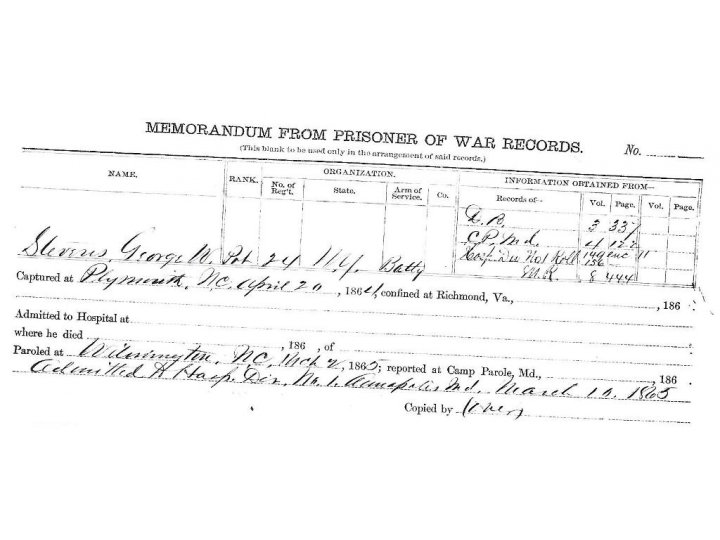 MEMORANDUM FROM PRISONER OF WAR RECORDS. No.
(This blank to be used only in the arrangement of said records.)
NAME. RANK. ORGANIZATION. INFORMATION OBTAINED FROM—
No. of Reg't. State. Arm of Service. Co. Records of— Vol. Page. Vol. Page.
D. B. 3 337
C.P. Md. 4 122
Stevens, George W. Pvt 24 N.Y. Batty Hosp. Div No 1 Roll 149 11
M.R. 8 444
Captured at Plymouth, NC, April 20, 1864, confined at Richmond, Va., , 186 .
Admitted to Hospital at
where he died , 186 , of
Paroled at Wilmington, NC, Mch 2, 1865; reported at Camp Parole, Md., , 186 .
Admitted to Hosp. Div. No. 1. Annapolis Md. March 10, 1865
Copied by (over)